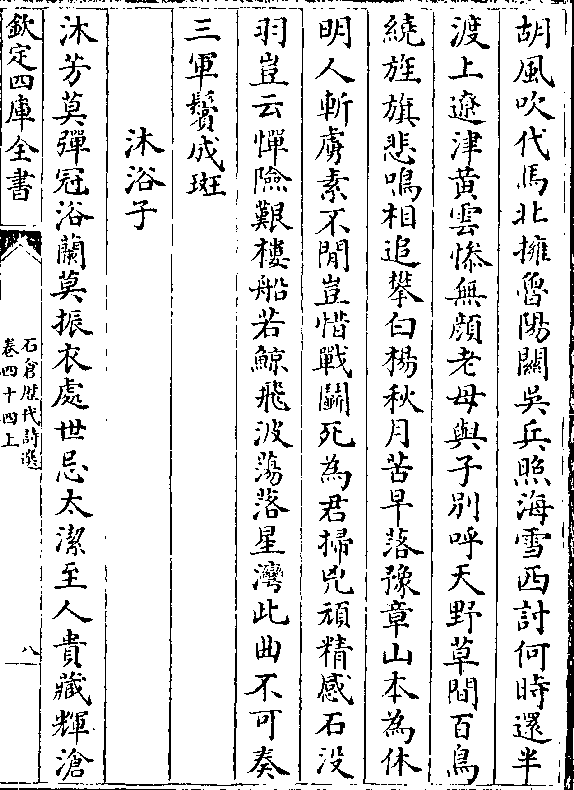 胡風吹代馬北擁魯陽關吳兵照海雪西討何時還半
渡上遼津黃雲慘無顔老母與子別呼天野草間百鳥
繞旌旗悲鳴相追攀白楊秋月苦早落豫章山本為休
明人斬虜素不閒豈惜戰鬭死為君掃兇頑精感石沒
羽豈云憚險艱樓船若鯨飛波蕩落星灣此曲不可奏
三軍鬢成斑
沐浴子
沐芳莫彈冠浴蘭莫振衣處世忌太潔至人貴藏輝滄
欽定四庫全書
石倉歴代詩選
卷四十四上
八